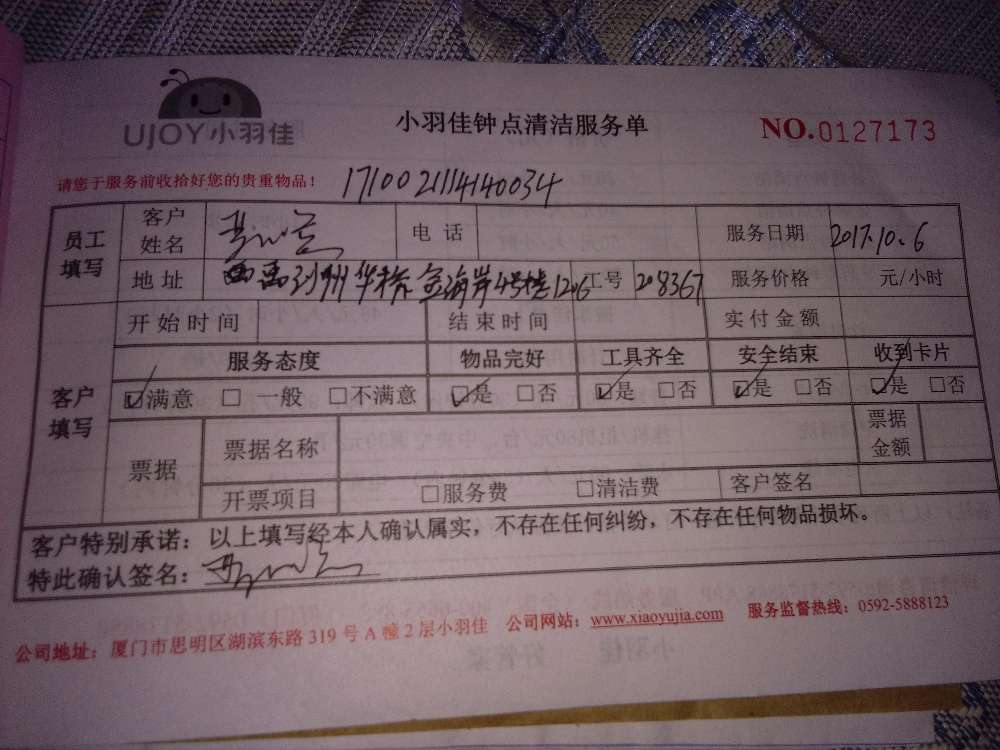 UJOY小羽佳
小羽佳钟点清洁服务单
NO.0127173
请您于服务前收拾好您的贵重物品！
171002114140034
员工填写 客户姓名 电话 服务日期 2017.10.6
地址 华桥金海岸4号楼1206 工号 208367 服务价格 元/小时
客户填写 开始时间 结束时间 实付金额
服务态度 物品完好 工具齐全 安全结束 收到卡片
☑满意 □一般 □不满意 ☑是 □否 ☑是 □否 ☑是 □否 ☑是 □否
票据 票据名称 票据金额
开票项目 □服务费 □清洁费 客户签名
客户特别承诺：以上填写经本人确认属实，不存在任何纠纷，不存在任何物品损坏。
特此确认签名：
公司地址：厦门市思明区湖滨东路319号A幢2层小羽佳 公司网站：www.xiaoyujia.com 服务监督热线：0592-5888123